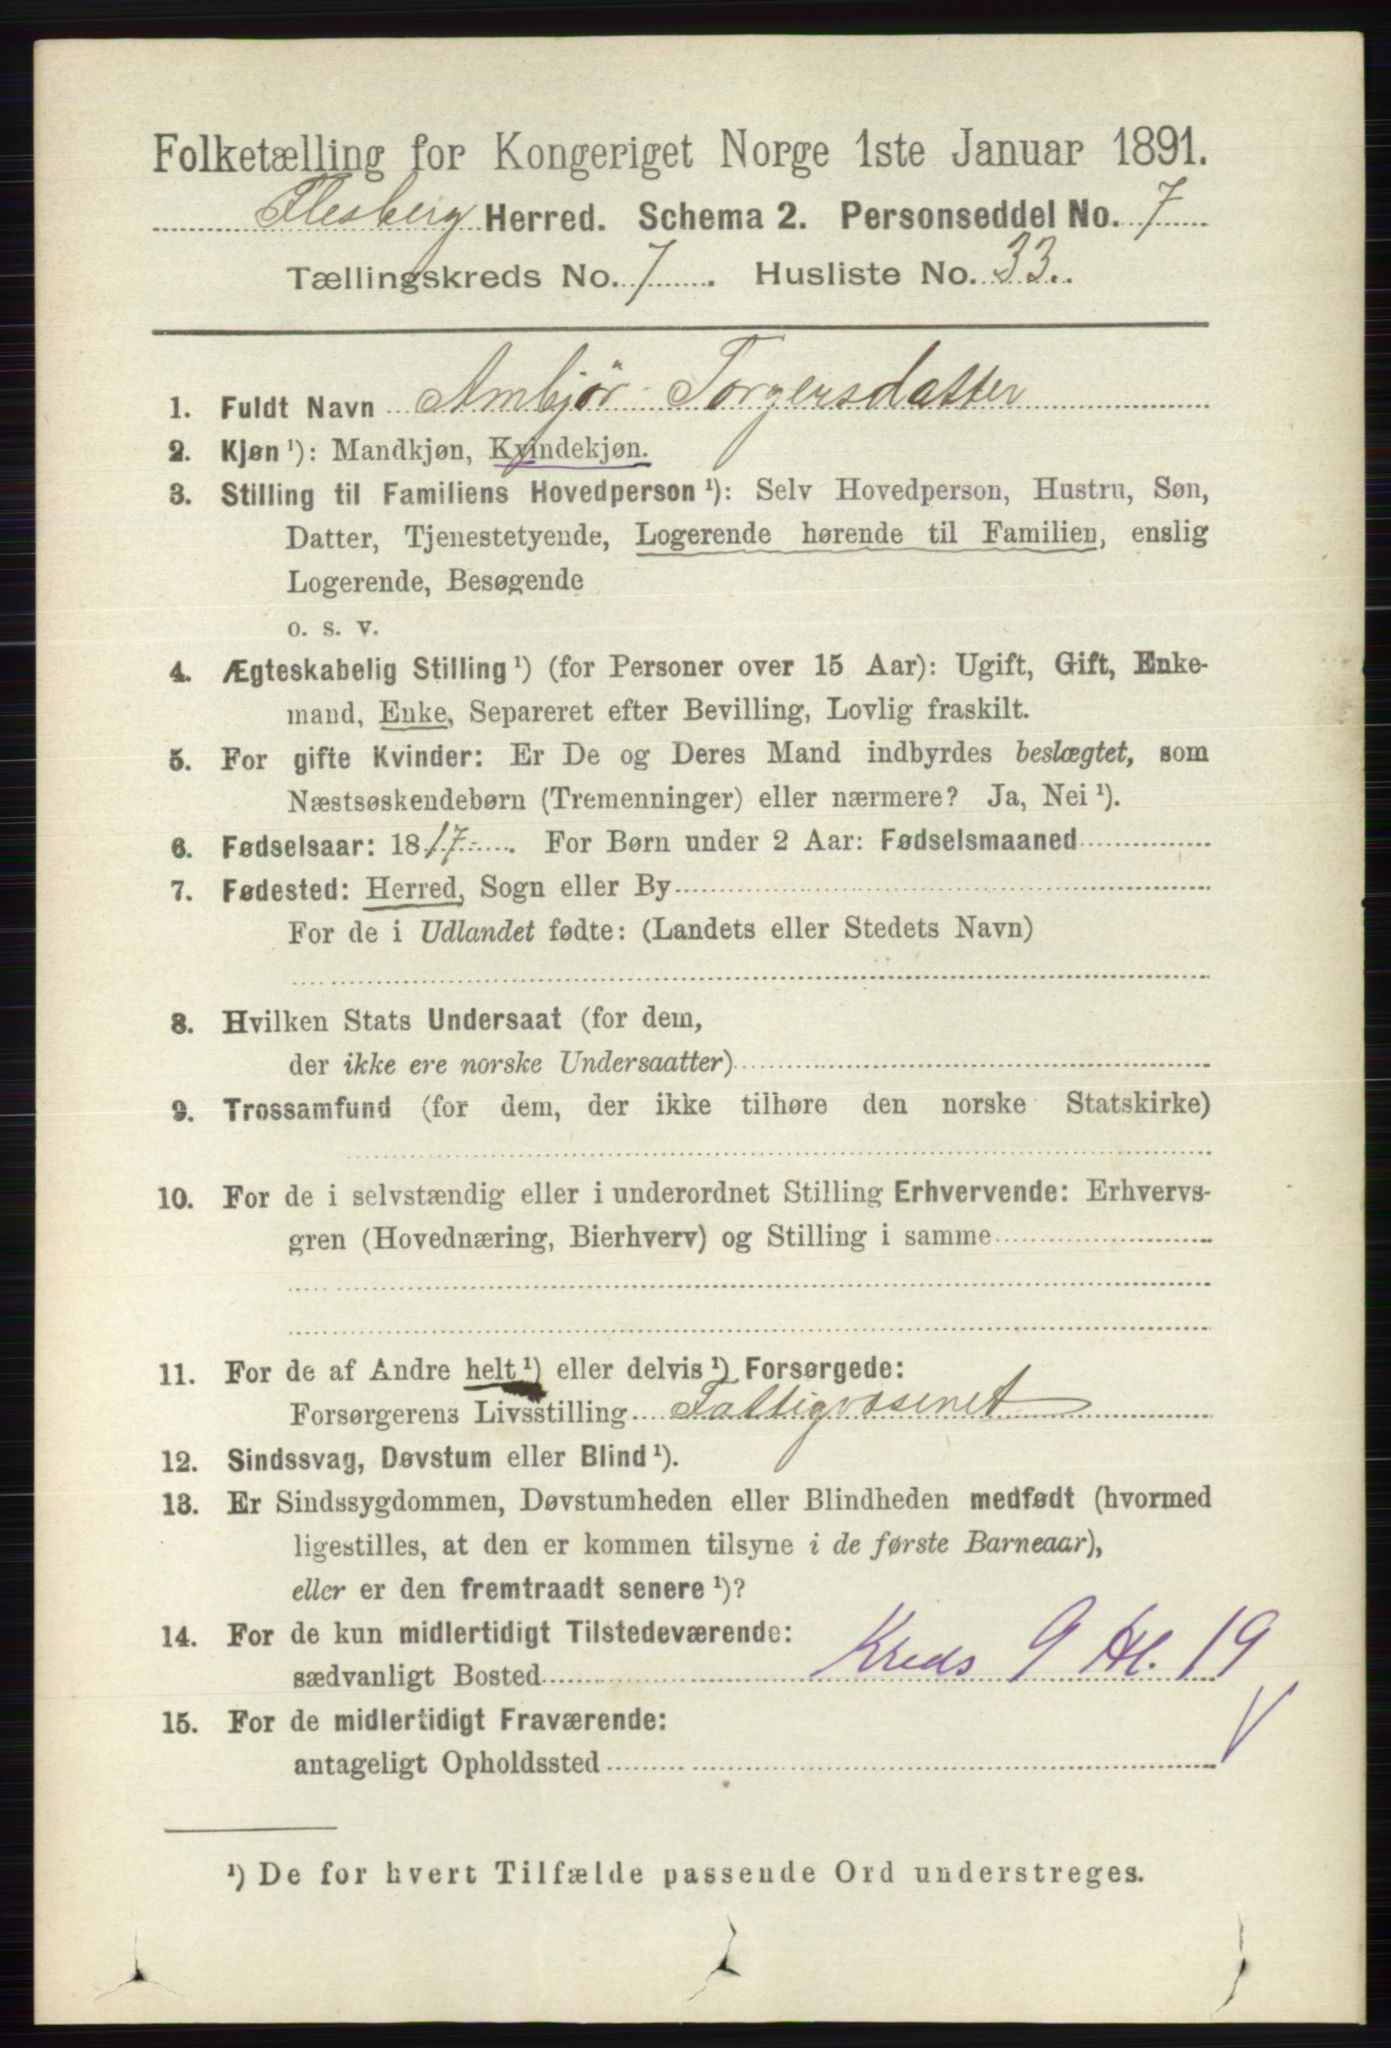 Folketælling for Kongeriget Norge 1ste Januar 1891.
Flesberg Herred. Schema 2. Personseddel No. 7
Tællingskreds No. 7. Husliste No. 33.
1. Fuldt Navn Ambjør Torgersdatter
2. Kjøn ¹): Mandkjøn, Kvindekjøn.
3. Stilling til Familiens Hovedperson ¹): Selv Hovedperson, Hustru, Søn,
Datter, Tjenestetyende, Logerende hørende til Familien, enslig
Logerende, Besøgende
o. s. v.
4. Ægteskabelig Stilling ¹) (for Personer over 15 Aar): Ugift, Gift, Enke-
mand, Enke, Separeret efter Bevilling, Lovlig fraskilt.
5. For gifte Kvinder: Er De og Deres Mand indbyrdes beslægtet, som
Næstsøskendebørn (Tremenninger) eller nærmere? Ja, Nei ¹).
6. Fødselsaar: 1817. For Børn under 2 Aar: Fødselsmaaned
7. Fødested: Herred, Sogn eller By
For de i Udlandet fødte: (Landets eller Stedets Navn)
8. Hvilken Stats Undersaat (for dem,
der ikke ere norske Undersaatter)
9. Trossamfund (for dem, der ikke tilhøre den norske Statskirke)
10. For de i selvstændig eller i underordnet Stilling Erhvervende: Erhvervs-
gren (Hovednæring, Bierhverv) og Stilling i samme
11. For de af Andre helt ¹) eller delvis ¹) Forsørgede:
Forsørgerens Livsstilling Fattigvæsenet
12. Sindssvag, Døvstum eller Blind ¹).
13. Er Sindssygdommen, Døvstumheden eller Blindheden medfødt (hvormed
ligestilles, at den er kommen tilsyne i de første Barneaar),
eller er den fremtraadt senere ¹)?
14. For de kun midlertidigt Tilstedeværende:
sædvanligt Bosted Kreds 9 Hl. 19
15. For de midlertidigt Fraværende:
antageligt Opholdssted V
¹) De for hvert Tilfælde passende Ord understreges.